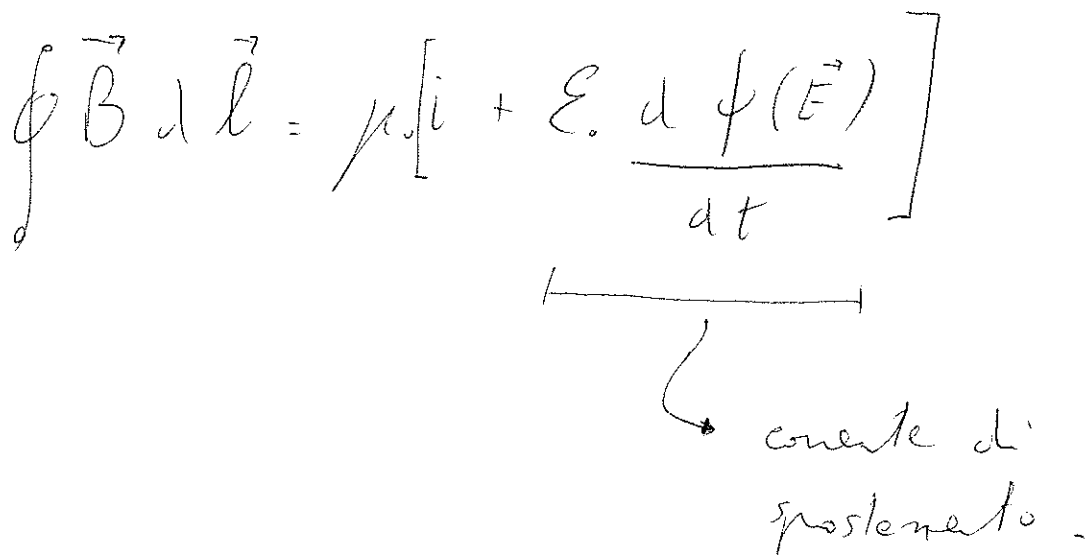 ∮ B⃗ d l⃗ = μ₀ [ i + ε₀ d ϕ(E⃗) / dt ]
corrente di
spostamento.